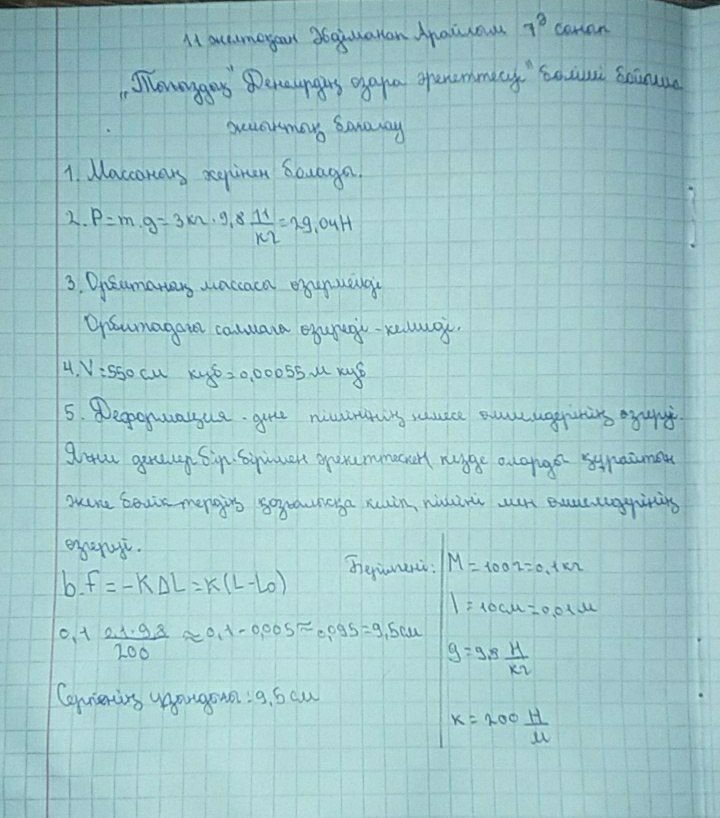 11 желтоқсан Әбдіманап Арайлым 7 "Э" сынап
"Тоғыздақ" Денелердің өзара әрекеттесуі" бөлімі бойынша
жиынтық бағалау
1. Массаның жерінен болады.
2. P=m.g=3кг·9,8 11/кг=29,04Н
3. Орбитаның массасы өзгермейді
Орбитадағы салмағы өзгереді - кемиді.
4. V=550см куб=0,00055м куб
5. Деформация - дене пішінінің немесе өлшемдерінің өзгеруі.
Яғни денелер бір-бірімен әрекеттескен кезде оларды құрайтын
жеке бөліктердің қозғалысқа келіп, пішіні мен өлшемдерінің
өзгеруі.
b. F=-KΔL=K(L-L0)
0,1 0,1·9,8/200 ≈0,1-0,005≈0,095=9,5см
Серпенің ұзындығы: 9,5см
Берілгені: M=100г=0,1кг
l=10см=0,01м
g=9,8 Н/кг
к=200 Н/м